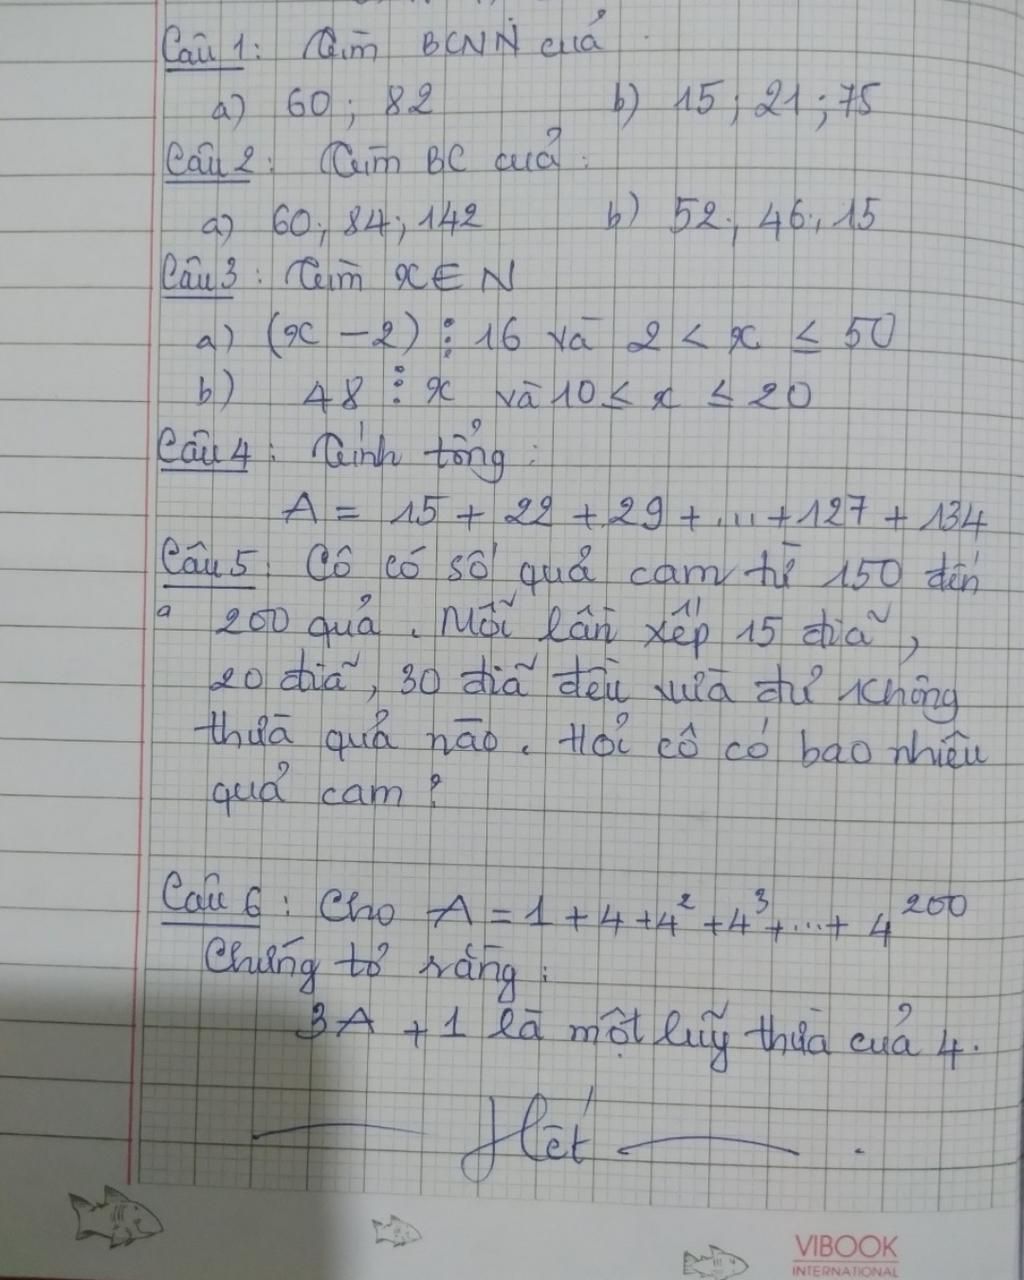 Câu 1: Tìm BCNN của
a) 60; 82 b) 15; 21; 75
Câu 2: Tìm BC của:
a) 60; 84; 142 b) 52; 46; 15
Câu 3: Tìm x ∈ N
a) (x - 2) ⋮ 16 và 2 < x ≤ 50
b) 48 ⋮ x và 10 ≤ x ≤ 20
Câu 4: Tính tổng:
A = 15 + 22 + 29 + ... + 127 + 134
Câu 5: Cô có số quả cam từ 150 đến
200 quả. Mỗi lần xếp 15 đĩa,
20 đĩa, 30 đĩa đều vừa đủ không
thừa quả nào. Hỏi cô có bao nhiêu
quả cam?
Câu 6: Cho A = 1 + 4 + 4² + 4³ + ... + 4²⁰⁰
Chứng tỏ rằng:
3A + 1 là một luỹ thừa của 4.
Hết
VIBOOK
INTERNATIONAL